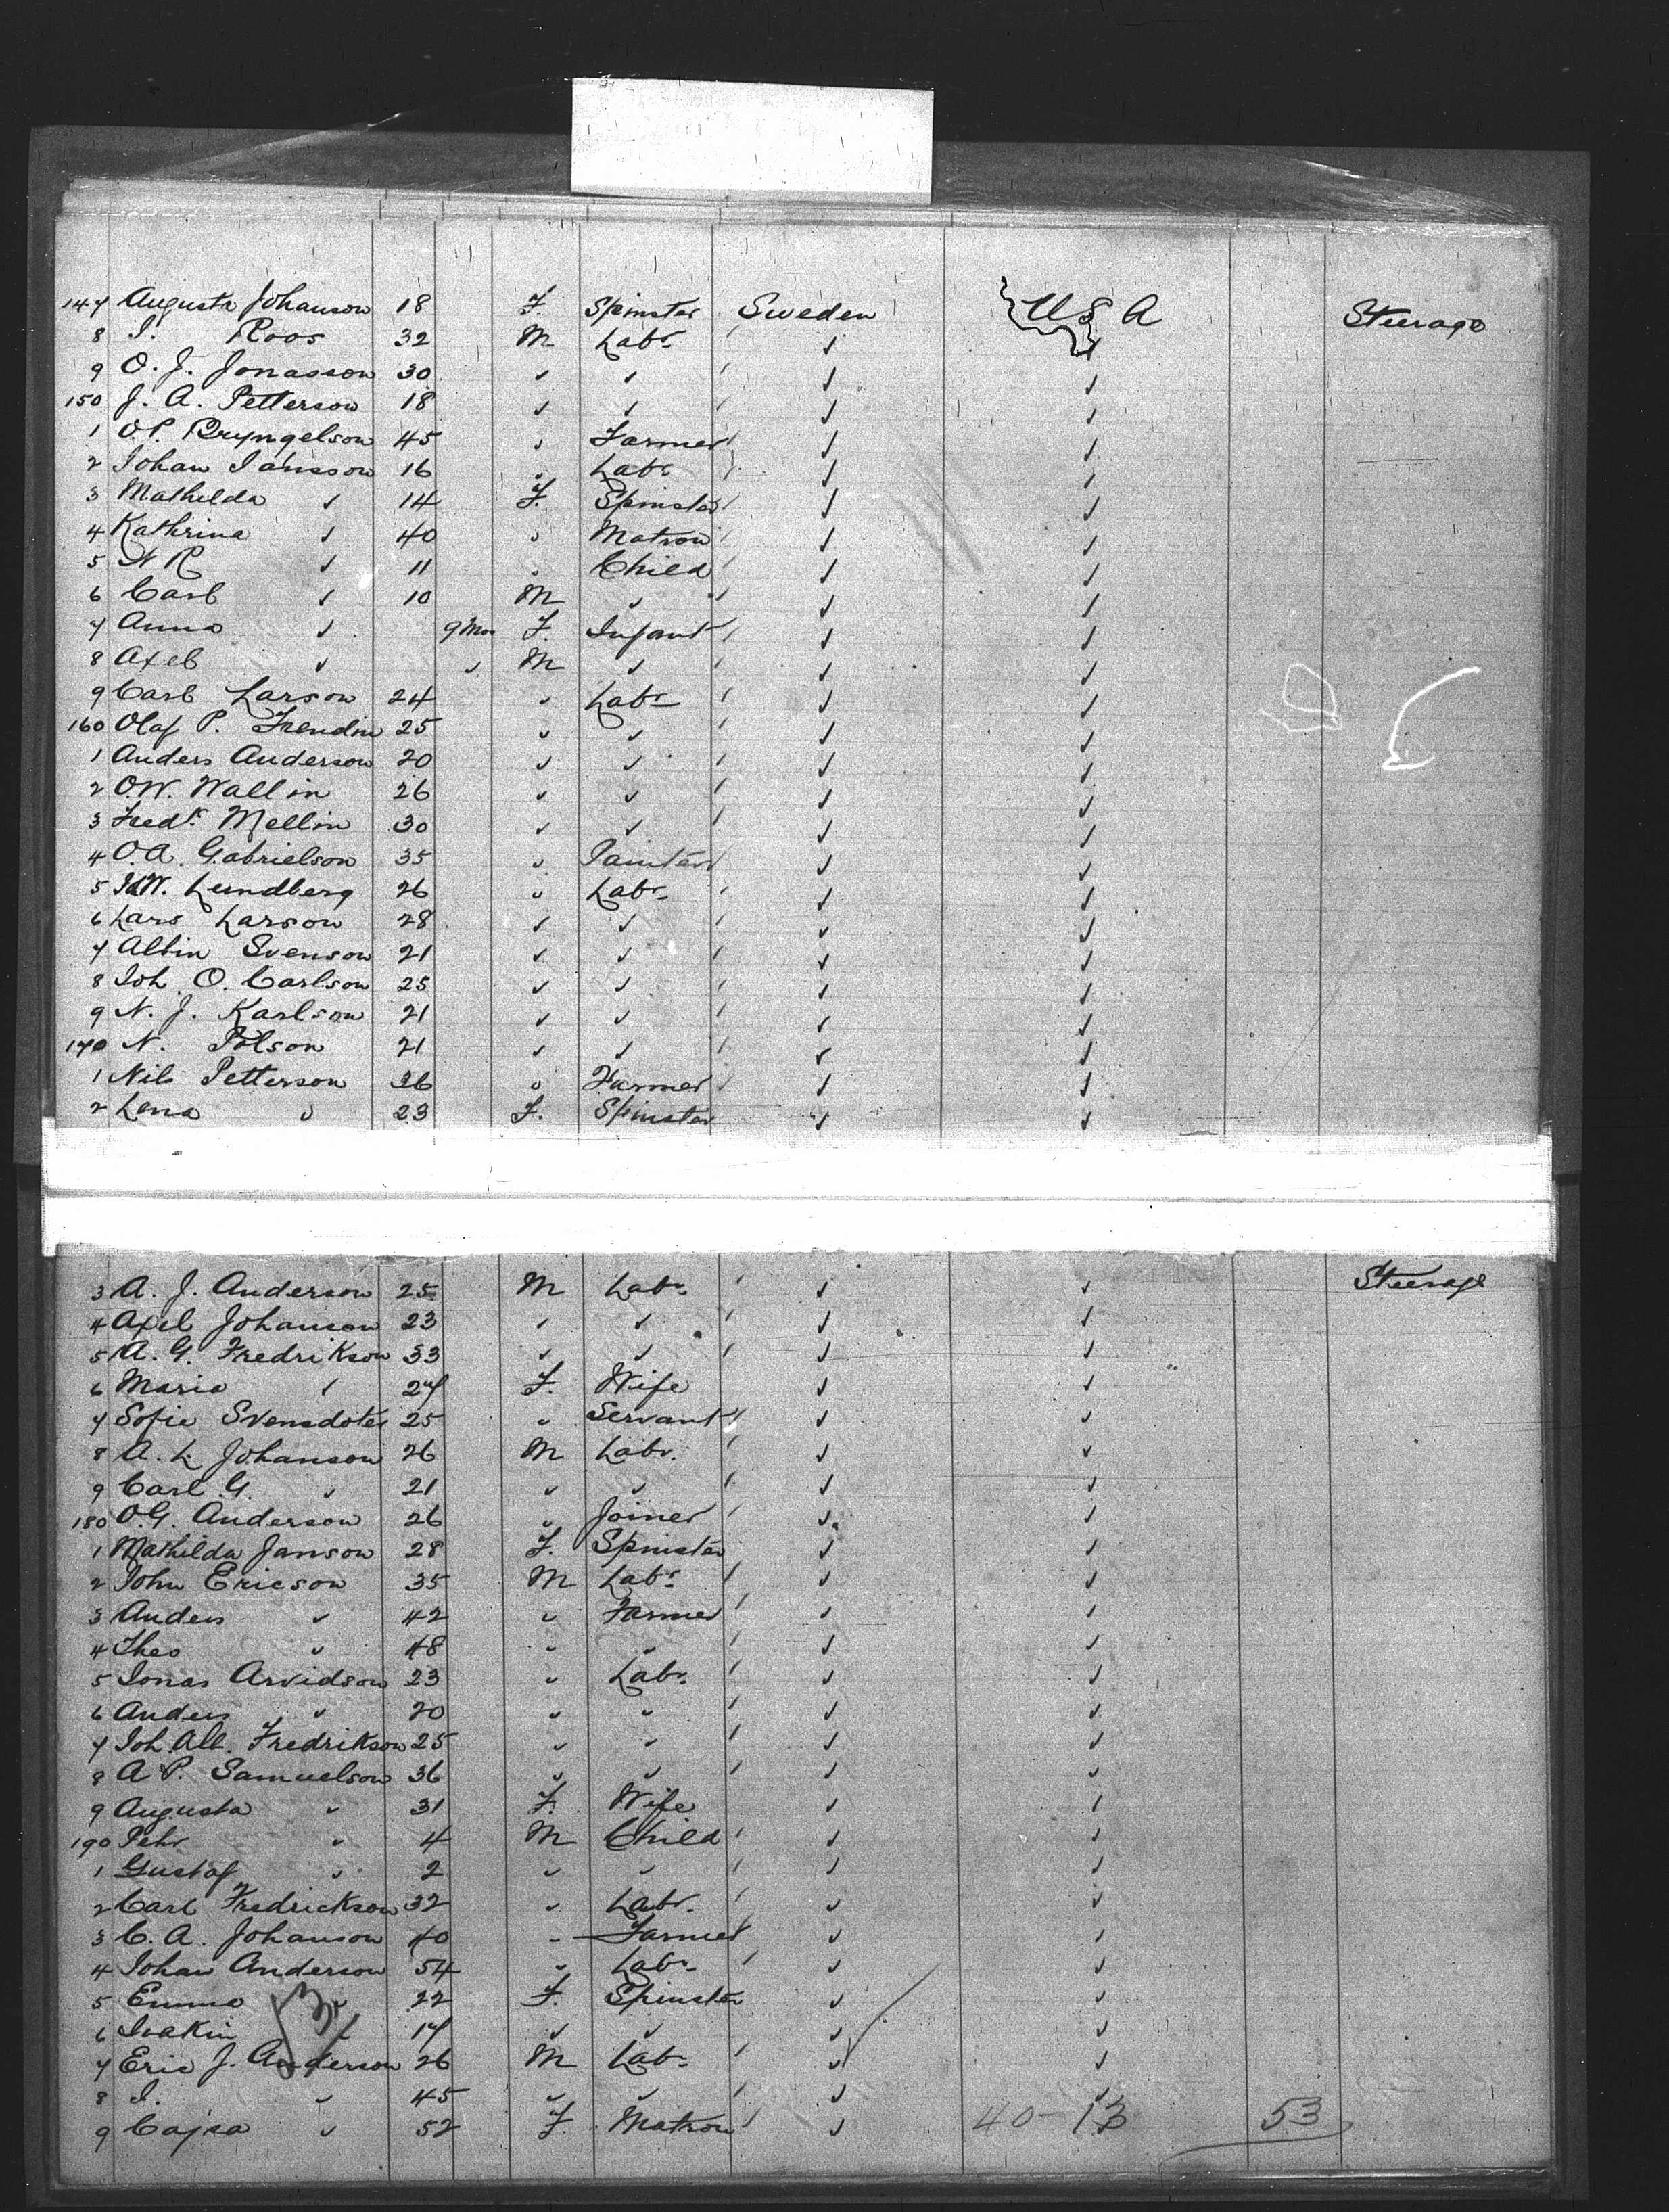 147 Augusta Johanson 18 F. Spinster Sweden USA Steerage
8 I. Roos 32 M Labr
9 O. J. Jonasson 30 " "
150 J. A. Petterson 18 " "
1 O. P. Bryngelson 45 " Farmer
2 Johan Jansson 16 " Labr
3 Mathilda " 14 F. Spinster
4 Kathrina " 40 " Matron
5 N R " 11 " Child
6 Carl " 10 M "
7 Anna " 9 Mos F. Infant
8 Axel " " M "
9 Carl Larson 24 " Labr
160 Olaf P. Frendin 25 " "
1 Anders Anderson 20 " "
2 O.W. Wallin 26 " "
3 Fredk. Mellin 30 " "
4 O. A. Gabrielson 35 " Painter
5 W. Lundberg 26 " Labr
6 Lars Larson 28 " "
7 Albin Svenson 21 " "
8 Joh. O. Carlson 25 " "
9 N. J. Karlson 21 " "
170 N. Polson 21 " "
1 Nils Petterson 26 " Farmer
2 Lena " 23 F. Spinster
3 A. J. Anderson 25 M Labr " " Steerage
4 Axel Johanson 23 " "
5 A. G. Fredrikson 33 " "
6 Maria " 27 F. Wife
7 Sofie Svensdoter 25 " Servant
8 A. L Johanson 26 M Labr.
9 Carl G. " 21 " "
180 O.G. Anderson 26 " Joiner
1 Mathilda Janson 28 F. Spinster
2 John Ericson 35 M Labr
3 Anders " 42 " Farmer
4 Theo " 48 " "
5 Jonas Arvidson 23 " Labr.
6 Anders " 20 " "
7 Joh. Alb. Fredrikson 25 " "
8 A P. Samuelson 36 " "
9 Augusta " 31 F. Wife
190 Pehr " 4 M Child
1 Gustaf " 2 " "
2 Carl Fredrickson 32 " Labr.
3 C. A. Johanson 40 " Farmer
4 Johan Anderson 54 " Labr
5 Emma " 22 F. Spinster
6 " 17 " "
7 Eric J. Anderson 26 M Labr
8 I. " 45 " "
9 Cajsa " 52 F. Matron
40-13 53